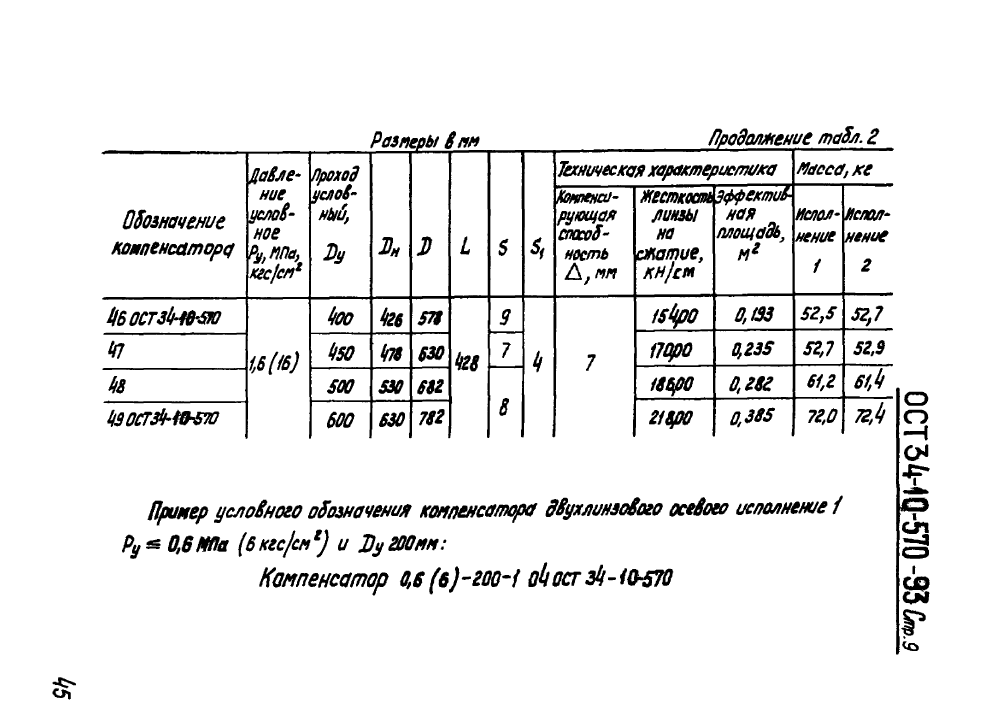 Размеры в мм
Продолжение табл. 2
Обозначение компенсатора
Давле-
ние
услов-
ное
Ру, МПа,
кгс/см²
Проход
услов-
ный,
Dу
Dн
D
L
S
S₁
Техническая характеристика
Компенси-
рующая
способ-
ность
Δ, мм
Жесткость
линзы
на
сжатие,
кН/см
Эффектив-
ная
площадь,
м²
Масса, кг
Испол-
нение
1
Испол-
нение
2
46 ОСТ 34-10-570
1,6 (16)
400
426
578
428
9
4
7
154,00
0,193
52,5
52,7
47
450
478
630
7
170,00
0,235
52,7
52,9
48
500
530
682
8
186,00
0,282
61,2
61,4
49 ОСТ 34-10-570
600
630
782
218,00
0,385
72,0
72,4
Пример условного обозначения компенсатора двухлинзового осевого исполнение 1
Ру ≤ 0,6 МПа (6 кгс/см²) и Dу 200 мм:
Компенсатор 0,6 (6)-200-1 04 ОСТ 34-10-570
ОСТ 34-10-570-93 Стр. 9
45